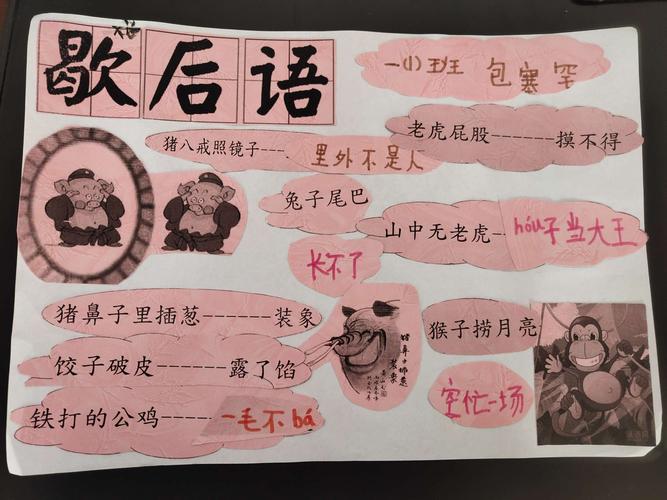 歇后语
一(1)班 包寒罕
猪八戒照镜子---里外不是人
老虎屁股------摸不得
兔子尾巴
长不了
山中无老虎-hóu子当大王
猪鼻子里插葱------装象
饺子破皮------露了馅
铁打的公鸡------一毛不bá
猴子捞月亮
空忙一场